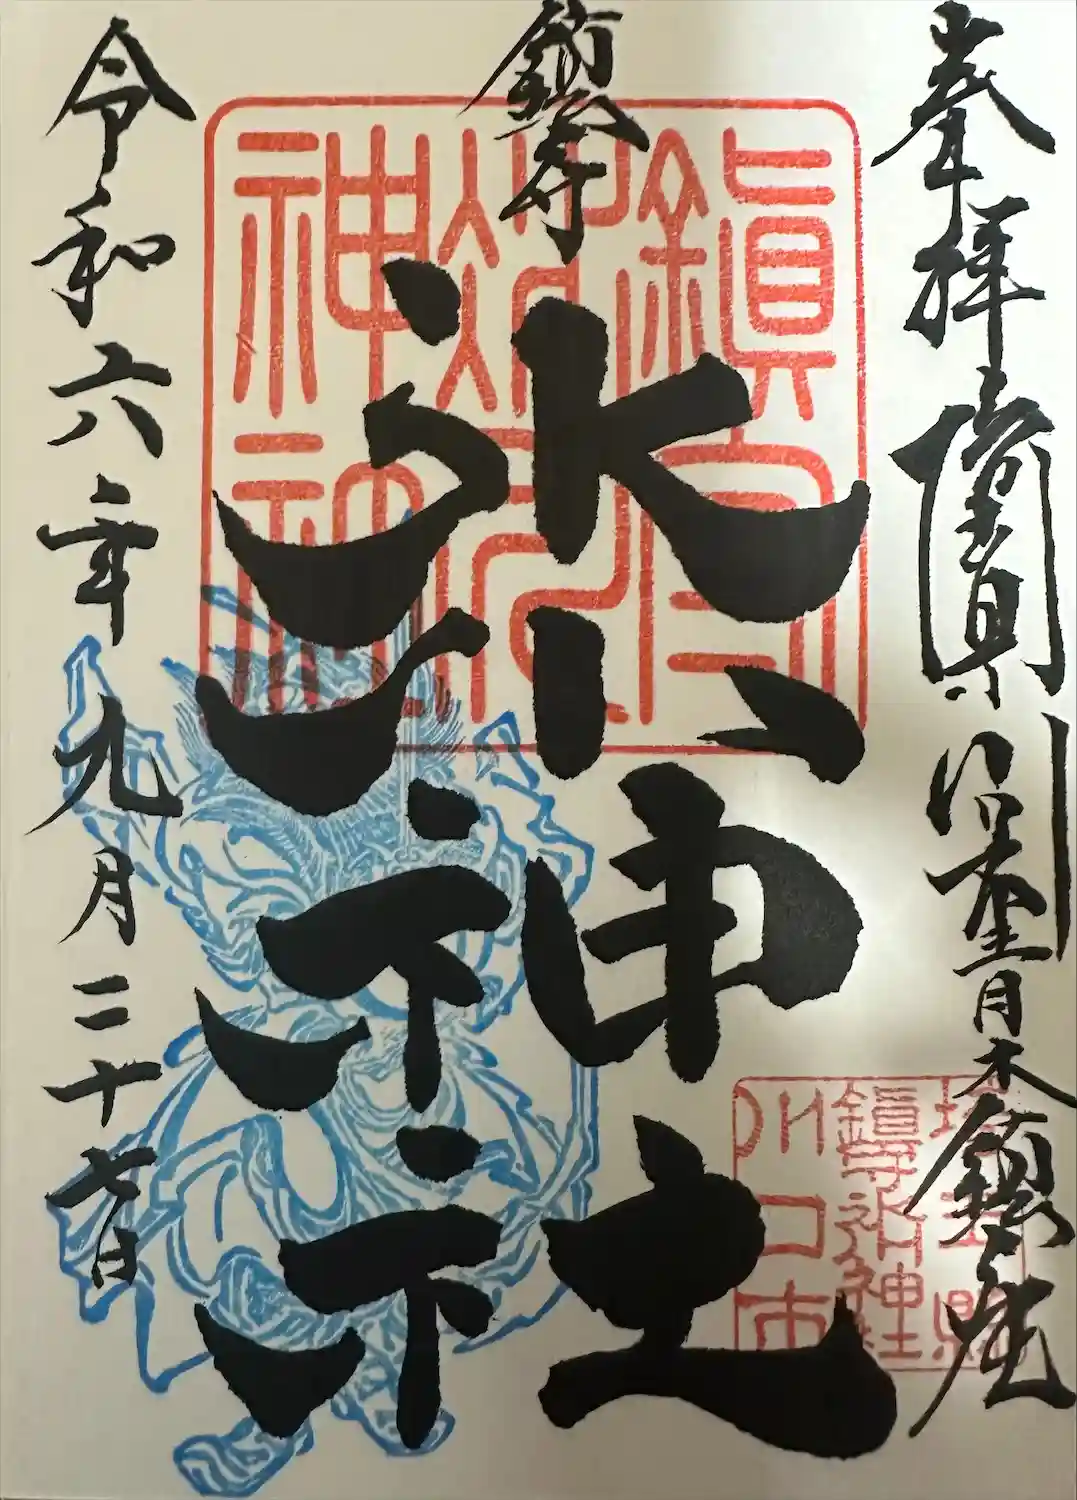 奉拝 埼玉県川口青木鎮座
鎮守
氷川神社
令和六年九月二十七日
鎮守
氷川
神社
埼玉縣
鎮守氷川神社
川口市